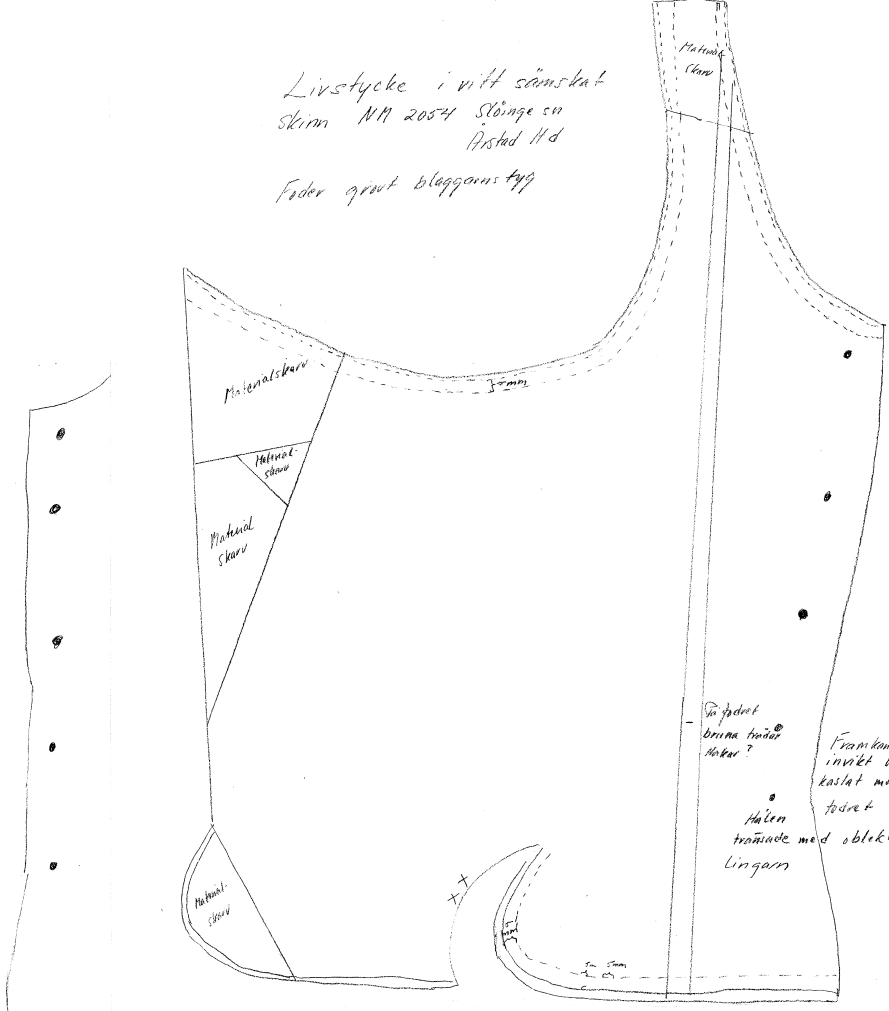 Livstycke i vitt sämskat
skinn NM 2054 Slöinge sn
Årstad Hd
Foder grovt blaggarnstyg
Material
skarv
5 mm
Materialskarv
Material-
skarv
Material
skarv
På fodret
bruna trådar
Hakar?
Framkan
invikt
kastat me
fodret
Hålen
transade med oblekt
Lingarn
Material-
skarv
5
mm
5mm